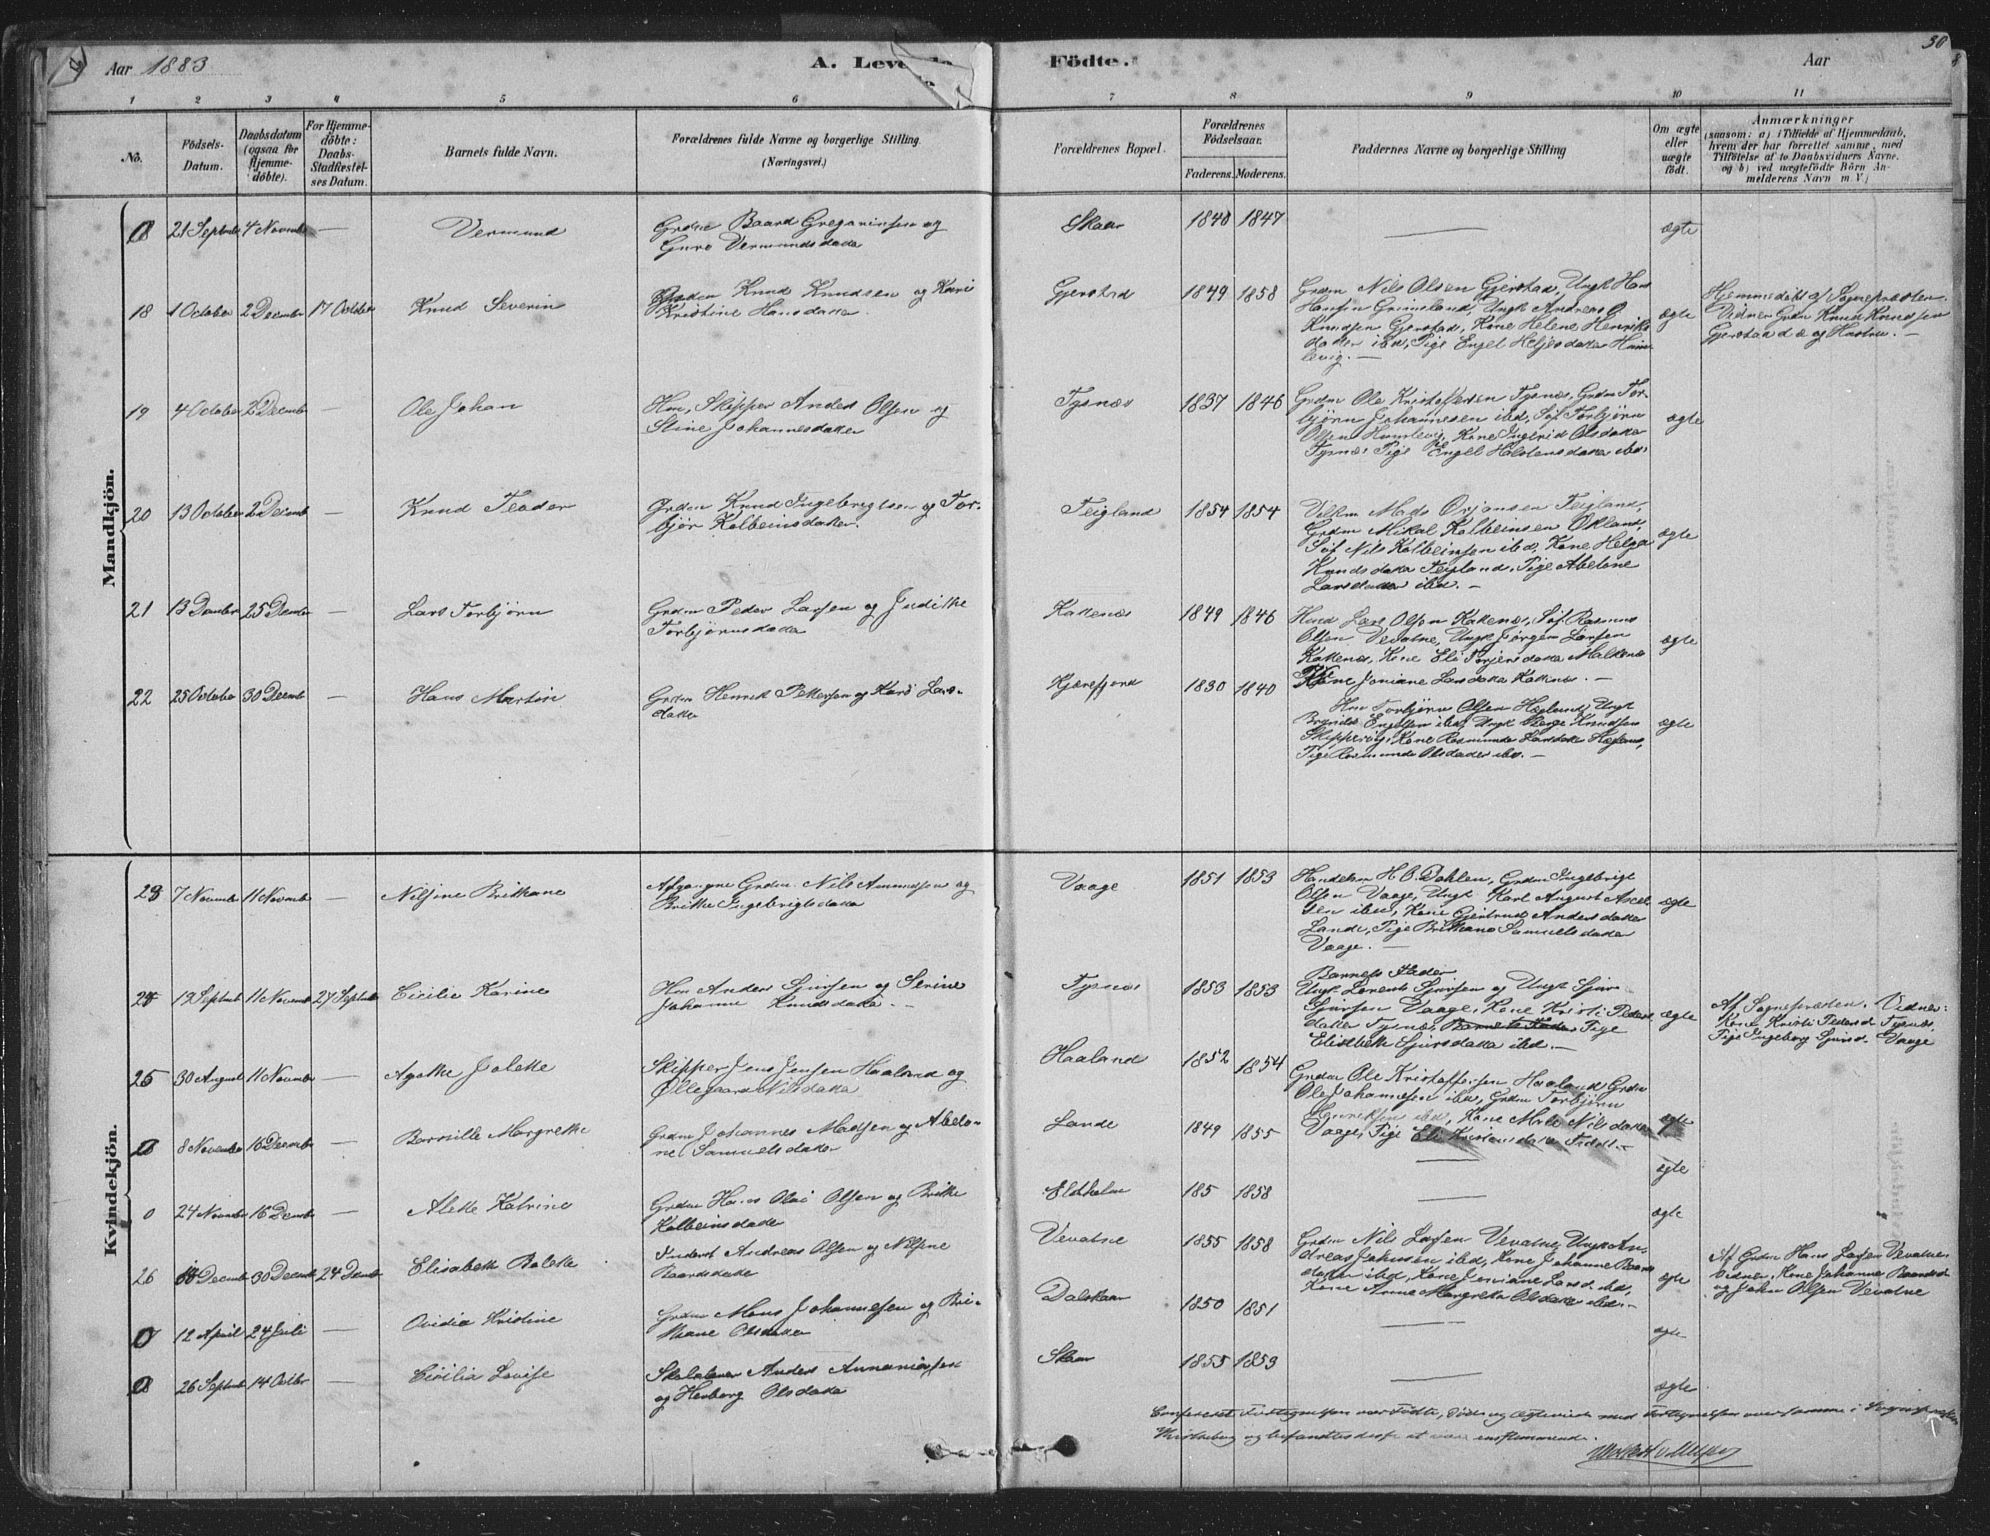 Aar 1883
A. Levende Födte.
Aar
30
1 2 3 4 5 6 7 8 9 10 11
No.
Födsels-Datum.
Daabsdatum (ogsaa for Hjemme-döbte).
For Hjemme-döbte: Daabs-Stadfæstel-ses Datum.
Barnets fulde Navn.
Forældrenes fulde Navne og borgerlige Stilling (Næringsvei.)
Forældrenes Bopæl.
Forældrenes Födselsaar.
Faderens. Moderens.
Faddernes Navne og borgerlige Stilling
Om ægte eller uægte födt.
Anmærkninger
(saasom: a) i Tilfælde af Hjemmedaab, hvem der har forrettet samme, med Tilföielse af to Daabsvidners Navne, og b) ved uægtefödte Börn An-melderens Navn m. V.)
Mandkjön.
0 21 Septembr 4 Novembr — Vermund
Grdm Baard Gregoriusen og
Guro Vermundsdatter
Skaar 1840 1847 — ægte
18 1 October 2 December 17 October Knud Severin
Grdm Knud Knudsen og Kari
Kristine Hansdatter.
Gjerstad 1849 1858
Grdm Nils Olsen Gjerstad, Ungk Hans
Hansen Grimsland, Ungk Andreas O
Knudsen Gjerstad, Kone Helene Henriks
datter ibd, Pige Engel Heljesdatter Humle
levig. —
ægte
Hjemmedöbt af Sognepræsten.
Vidner Grdm Knud Knudsen
Gjerstad d. æ og Hustru. —
19 4 October 2 Decembr — Ole Johan
Hm, Skipper Anders Olsen og
Stine Johannesdatter
Tysnes 1837 1846
Grdm Ole Kristoffersen Tysnes, Grdm Tor-
bjørn Johannesen ibd, Søf Torbjørn
Olsen Humlevig, Kone Ingbrid Olsdatter
Tysnes Pige Engel Halstensdatter ibd.
ægte
20 13 October 2 Decemb — Knud Teodor
Grdm Knud Ingebrigtsen og Tor-
bjør Kolbeinsdatter.
Teigland 1854 1854
Mads Ørjansen Teigland,
Grdm Mikal Kolbeinsen Økland,
Søf Nils Kolbeinsen ibd, Kone Helga
Knudsdatter Teigland, Pige Abelone
Larsdatter ibd. —
ægte
21 13 Decmbr 25 Decmbr — Lars Torbjørn
Grdm Peder Larsen og Judithe
Torbjørnsdatter
Kattenes 1849 1846
Lars Olsen Kattenes, Søf Rasmus
Olsen Vevatne, Ungk Jørgen Larsen
Kattenes, Kone Eli Torjersdatter Malkenes
Pige Joniane Larsdatter Kattenes. —
ægte
22 25 October 30 Decemb — Hans Martin
Grdm Henrik Pettersen og Kari Lars-
datter
Kjærefjord 1830 1840
Hm Torbjørn Olsen Hegland, Ungk
Engelsen ibd, Ungk Børge Knudsen
Skippervig, Kone Rasmunda Larsdatter
Pige Rasmunda Olsdatter ibd. —
ægte
Kvindekjön.
23 7 Novembr 11 Novembr — Nilsine Brithane
Afgangne Grdm. Nils Amundsen og
Brithe Ingebrigtsdatter
Vaage 1851 1853
Handelsm H. O. Dahlen, Grdm Ingebrigt
Olsen Vaage, Ungk Karl August Axel-
sen ibd, Kone Gjertrud Andersdatter
Lande, Pige Brithane Samuelsdatter
Vaage. —
ægte
24 19 Septemb 11 Novemb 27 Septembr Cicilie Karine
Hm Anders Sjursen og Serine
Johanne Knudsdatter. —
Tysnes 1853 1853
Barnets Fader
Ungk Lorents Sjursen og Ungk Sjur
Sjursen Vaage, Kone Kristi Peders
datter Tysnes, Barnets Fader, Pige
Elisbethe Sjursdatter ibd. —
ægte
Af Sognepræsten. Vidner:
Kone Kristi Pedersd. Tysnes,
Pige Ingeborg Sjursd. Vaage
25 30 August 11 Novembr — Agathe Jolette
Skipper Jens Jensen Haaland og
Øllegaard Nilsdatter
Haaland 1852 1854
Grdm Ole Kristoffersen Haaland, Grdm
Ole Johannesen ibd, Grdm Torbjørn
Henriksen ibd, Kone Marte Nilsdatter
Vaage, Pige Eli Kristensdatter
ægte
0 8 November 16 Decembr Borsille Margrethe
Grdm Johannes Madsen og Abelo-
ne Samuelsdatter
Lande 1849 1855 — ægte
0 24 Novembr 16 Decembr — Alette Katrine
Grdm Hans Olai Olsen og Brithe
Kolbeinsdatter
Eldholm 185 1858 — ægte
26 Decembr 30 Decemb 24 Decemb Elisabeth Bolette
Inderst Andreas Olsen og Nilsine
Baardsdatter
Vevatne 1855 1858
Grdm Nils Larsen Vevatne, Ungk An-
dreas Jakobsen ibd, Kone Johanne Baards
datter ibd, Kone Joniane Larsd. ibd,
Kone Anne Margreta Olsdatter ibd. —
ægte
Af Grdm Hans Larsen Vevatne.
Vidner, Kone Johanne Baardsd
og John Olsen Vevatne
0 12 April 24 Juli — Ovidia Kristine
Grdm Mons Johannesen og Bri-
thane Olsdatter
Dalskaar 1850 1851 — ægte
0 26 Septembr 14 Octbr Cicilia Lovise
Skolelærer Anders Annaniassen
og Herborg Olsdatter
Skaar 1855 1853 — ægte
Confereret Fortegnelsen over Fødte, Døde og Ægteviede med Fortegnelsen over samme i Sognepræstens
Ministerialbog og befandtes disse at være enslydende.